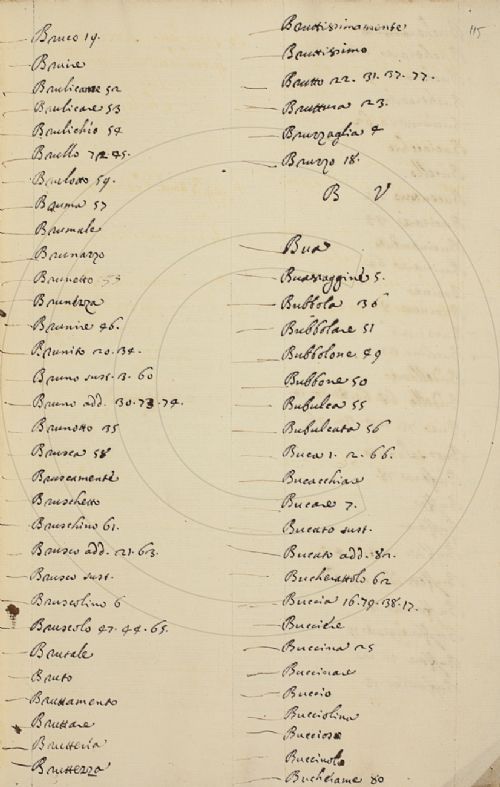 Bruco 19.
Bruire
Brulicame 52
Brulicare 53
Brulichio 54
Brullo 72 45.
Brulotto 59.
Bruma 57
Brumale
Brunazzo
Brunetto 55
Brunezza
Brunire 46.
Brunito 20. 34.
Bruno sust. 3. 60
Bruno add. 30. 73. 74.
Brunotto 35
Brusca 58
Bruscamente
Bruschetto
Bruschino 61.
Brusco add. 21. 63.
Brusco sust.
Bruscolino 6
Bruscolo 47. 44. 65.
Brutale
Bruto
Bruttamento
Bruttare
Brutteria
Bruttezza
115
Bruttissimamente
Bruttissimo
Brutto 22. 31. 37. 77.
Bruttura 23.
Bruzzaglia 4
Bruzzo 18.
B V
Bua
Buassaggine 5.
Bubbola 36
Bubbolare 51
Bubbolone 49
Bubbone 50
Bubulca 55
Bubulcata 56
Buca 1. 2. 66.
Bucacchiare
Bucare 7.
Bucato sust.
Bucato add. 82.
Bucherattolo 62
Buccia 16. 79. 38. 17.
Buccina 25
Buccinare
Buccio
Bucciolina
Buccioso
Buccinolo
Buchciame 80